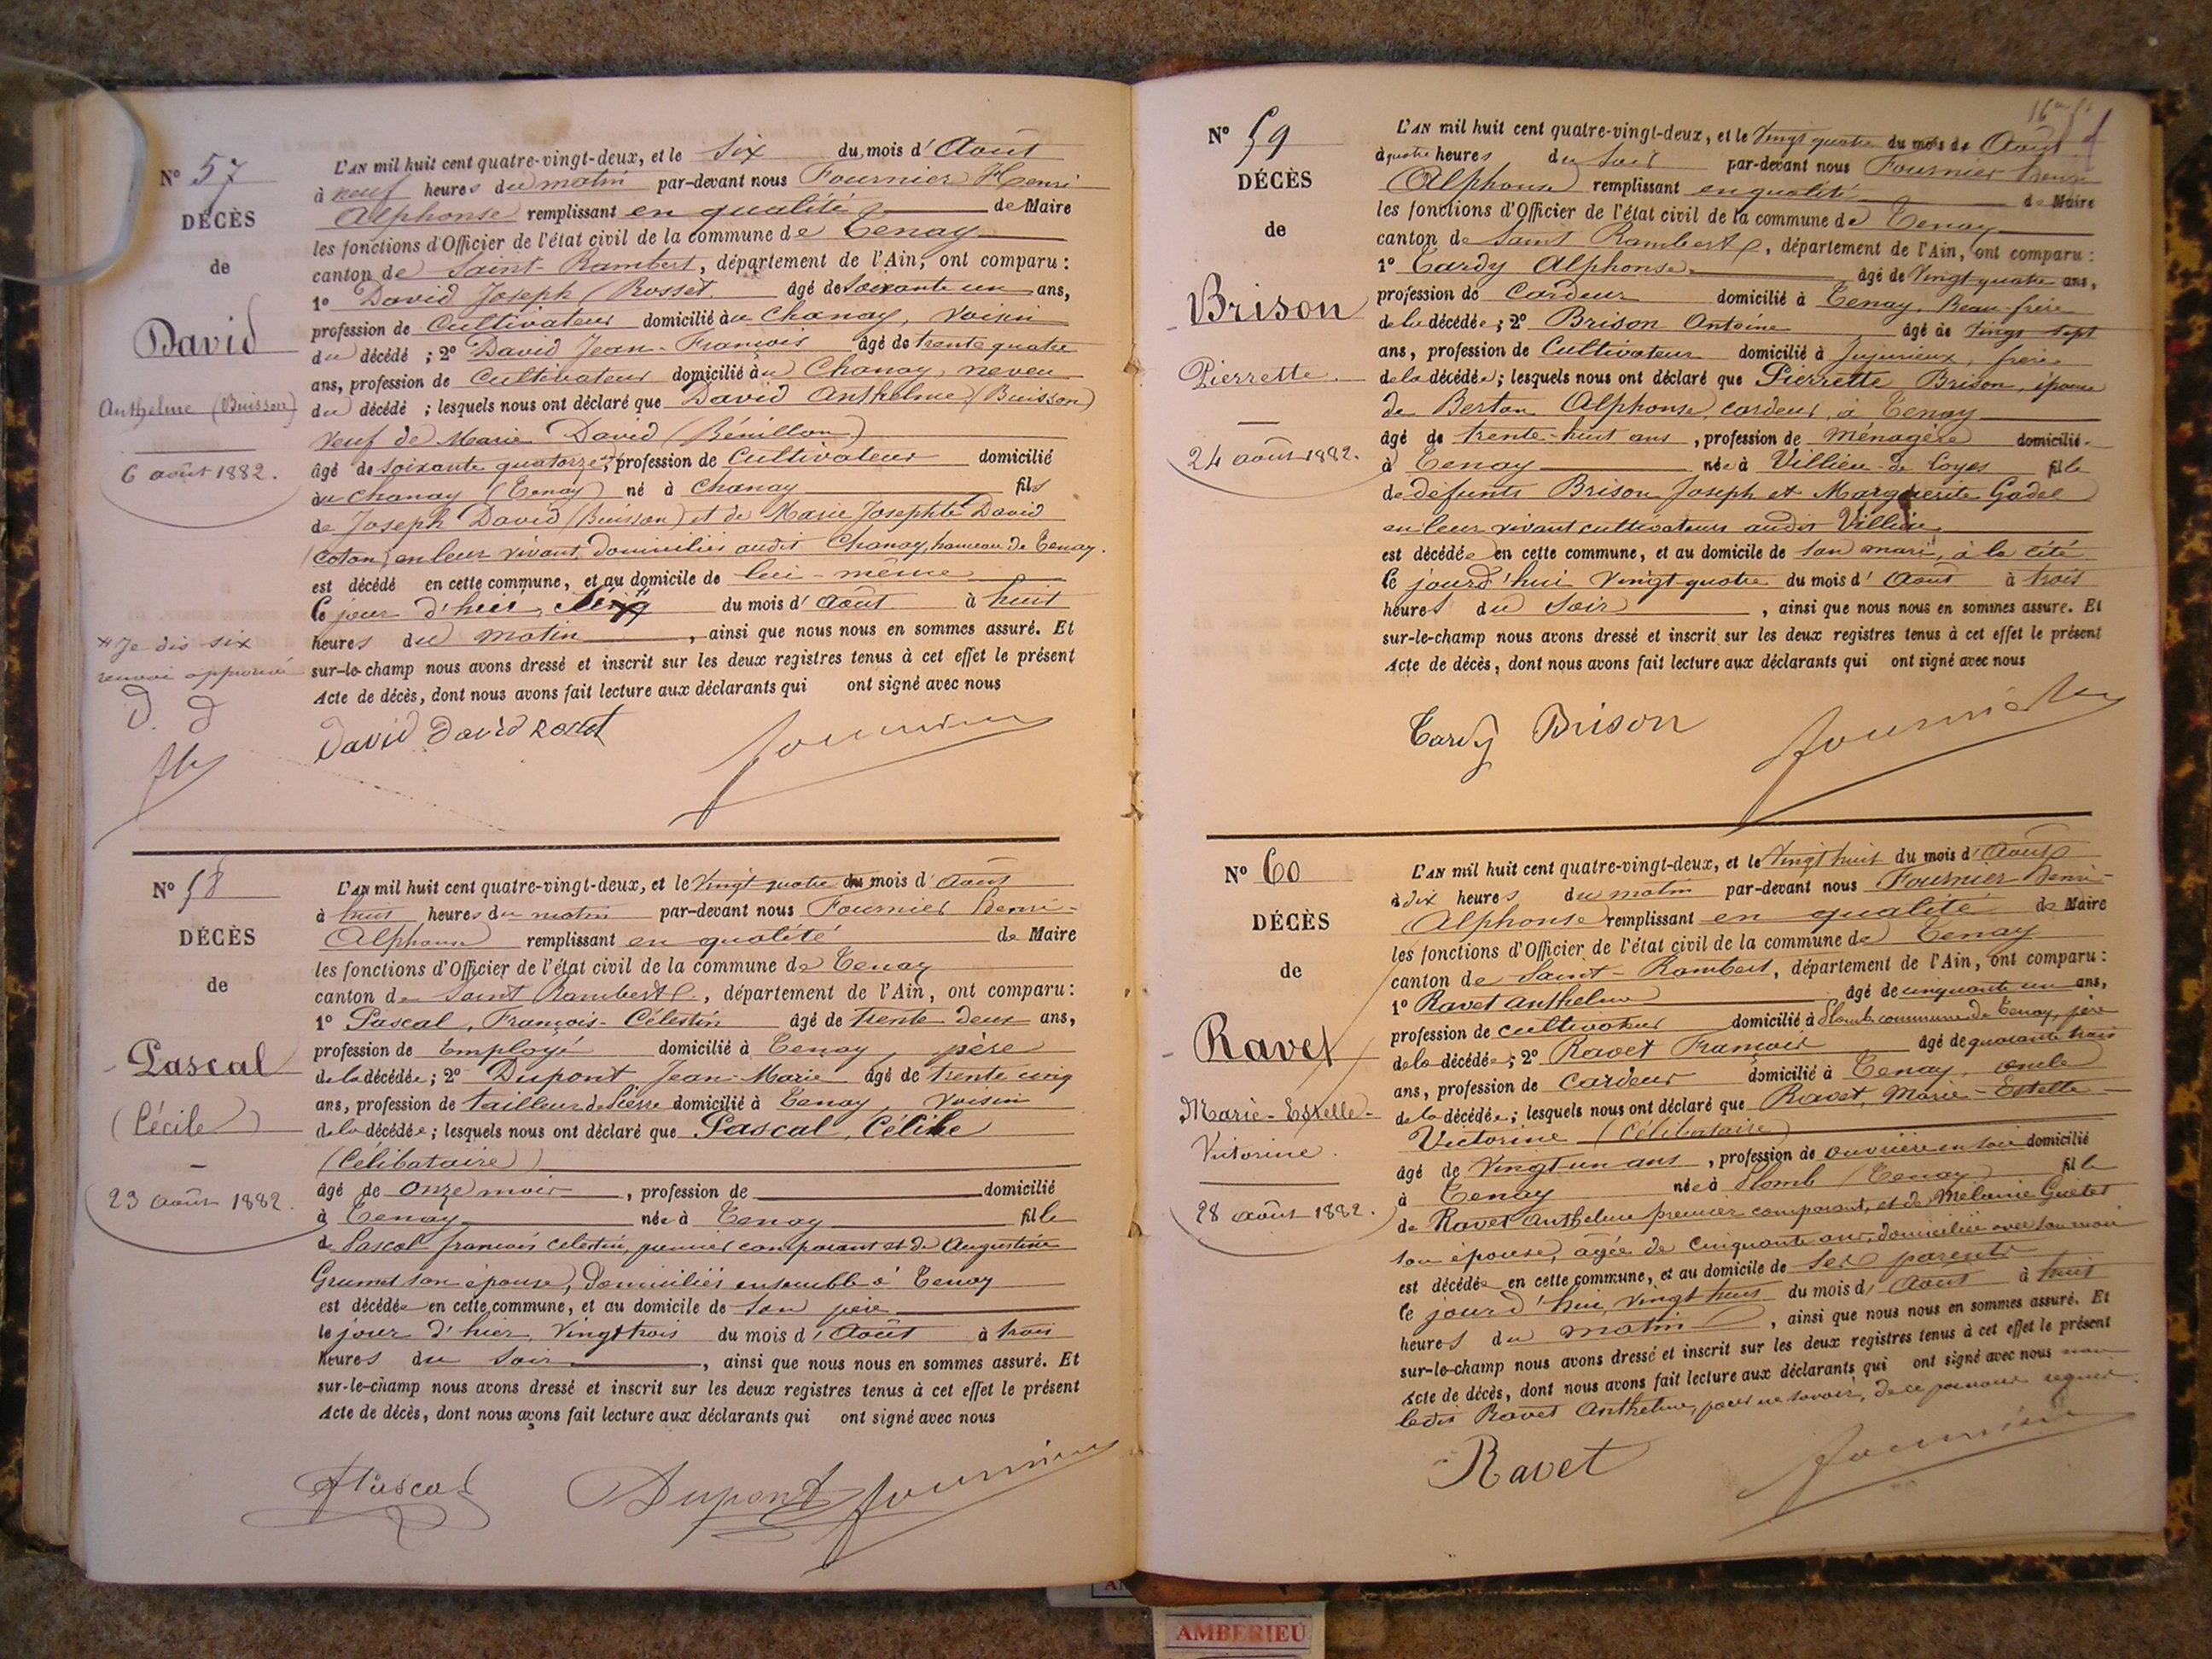 N° 57
DÉCÈS
de
David
Anthelme (Buisson)
6 août 1882.
* Je dis six
renvoi approuvé
D. D
L'AN mil huit cent quatre-vingt-deux, et le six du mois d'Août
à neuf heures du matin par-devant nous Fournier Henri
Alphonse remplissant en qualité de Maire
les fonctions d'Officier de l'état civil de la commune de Tenay
canton de Saint-Rambert, département de l'Ain, ont comparu :
1° David Joseph (Rosset. âgé de soixante un ans,
profession de Cultivateur domicilié au Chanay, voisin
du décédé ; 2° David Jean-François âgé de trente quatre
ans, profession de Cultivateur domicilié au Chanay, neveu
du décédé ; lesquels nous ont déclaré que David Anthelme (Buisson)
veuf de Marie David (Bénillon)
âgé de soixante quatorze, profession de Cultivateur domicilié
au Chanay (Tenay) né à Chanay fils
de Joseph David (Buisson) et de Marie Josephte David
(Coton) en leur vivant domiciliés audit Chanay, hameau de Tenay.
est décédé en cette commune, et au domicile de lui-même
le jour d'hui, du mois d'Août à huit
heures du matin, ainsi que nous nous en sommes assuré. Et
sur-le-champ nous avons dressé et inscrit sur les deux registres tenus à cet effet le présent
Acte de décès, dont nous avons fait lecture aux déclarants qui ont signé avec nous
David David Rosset Fournier
N° 58
DÉCÈS
de
Pascal
(Cécile)
23 août 1882.
L'AN mil huit cent quatre-vingt-deux, et le vingt quatre du mois d'Août
à huit heures du matin par-devant nous Fournier Henri-
Alphonse remplissant en qualité de Maire
les fonctions d'Officier de l'état civil de la commune de Tenay
canton de Saint Rambert, département de l'Ain, ont comparu :
1° Pascal, François-Célestin âgé de trente deux ans,
profession de Employé domicilié à Tenay, père
de la décédée ; 2° Dupont Jean-Marie âgé de trente cinq
ans, profession de tailleur de Pierre domicilié à Tenay, voisin
de la décédée ; lesquels nous ont déclaré que Pascal,
(Célibataire)
âgé de onze mois, profession de domicilié
à Tenay née à Tenay fille
de Pascal françois célestin, premier comparant et de Augustine
Grumet son épouse, domiciliés ensemble à Tenay
est décédée en cette commune, et au domicile de son père
le jour d'hier, vingt trois du mois d'Août à trois
heures du soir, ainsi que nous nous en sommes assuré. Et
sur-le-champ nous avons dressé et inscrit sur les deux registres tenus à cet effet le présent
Acte de décès, dont nous avons fait lecture aux déclarants qui ont signé avec nous
Pascal Dupont Fournier
N° 59
DÉCÈS
de
Brison
Pierrette
24 août 1882.
L'AN mil huit cent quatre-vingt-deux, et le vingt quatre du mois de Août
à quatre heures du soir par-devant nous Fournier Henri
Alphonse remplissant en qualité de Maire
les fonctions d'Officier de l'état civil de la commune de Tenay
canton de Saint Rambert, département de l'Ain, ont comparu :
1° Tardy Alphonse âgé de vingt-quatre ans,
profession de Cardeur domicilié à Tenay, Beau-frère
de la décédée ; 2° Brison Antoine âgé de vingt sept
ans, profession de Cultivateur domicilié à Jujurieux, frère
de la décédée ; lesquels nous ont déclaré que Pierrette Brison, épouse
de Berton Alphonse, cardeur, à Tenay
âgé de trente-huit ans, profession de Ménagère domicilié
à Tenay née à Villieu-de Loyes fille
de défunts Brison Joseph et Marguerite Godel
en leur vivant cultivateurs audit Villieu
est décédée en cette commune, et au domicile de son mari, à la cité
le jourd'hui vingt quatre du mois d'Août à trois
heures du soir, ainsi que nous nous en sommes assuré. Et
sur-le-champ nous avons dressé et inscrit sur les deux registres tenus à cet effet le présent
Acte de décès, dont nous avons fait lecture aux déclarants qui ont signé avec nous
Tardy Brison Fournier
N° 60
DÉCÈS
de
Ravet
Marie-Estelle-
Victorine.
28 août 1882.
L'AN mil huit cent quatre-vingt-deux, et le vingt huit du mois d'Août
à dix heures du matin par-devant nous Fournier Henri-
Alphonse remplissant en qualité de Maire
les fonctions d'Officier de l'état civil de la commune de Tenay
canton de Saint-Rambert, département de l'Ain, ont comparu :
1° Ravet Anthelme âgé de cinquante un ans,
profession de cultivateur domicilié à Plomb commune de Tenay, père
de la décédée ; 2° Ravet François âgé de quarante trois
ans, profession de Cardeur domicilié à Tenay, oncle
de la décédée ; lesquels nous ont déclaré que Ravet, Marie-Estelle-
Victorine (Célibataire)
âgé de vingt un ans, profession de ouvrière en soie domicilié
à Tenay née à Plomb (Tenay) fille
de Ravet Anthelme premier comparant, et de Mélanie Guetet
son épouse, âgée de cinquante ans, domiciliée avec son mari
est décédée en cette commune, et au domicile de ses parents
le jourd'hui vingt huit du mois d'Août à huit
heures du matin, ainsi que nous nous en sommes assuré. Et
sur-le-champ nous avons dressé et inscrit sur les deux registres tenus à cet effet le présent
Acte de décès, dont nous avons fait lecture aux déclarants qui ont signé avec nous non
ledit Ravet Anthelme, pour ne savoir, de ce requis.
Ravet Fournier
AMBERIEU